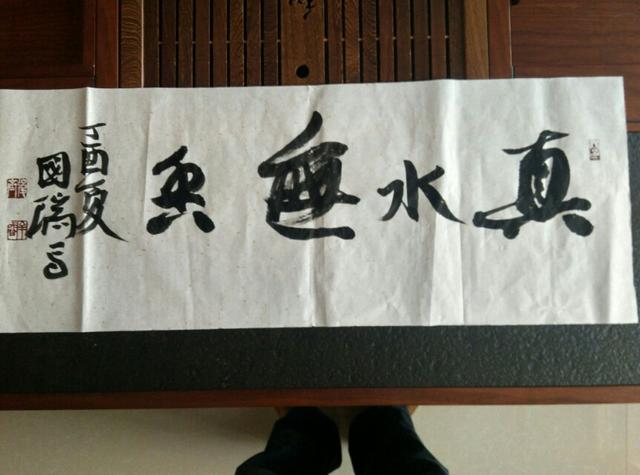 真水無香
丁酉夏
國瑞